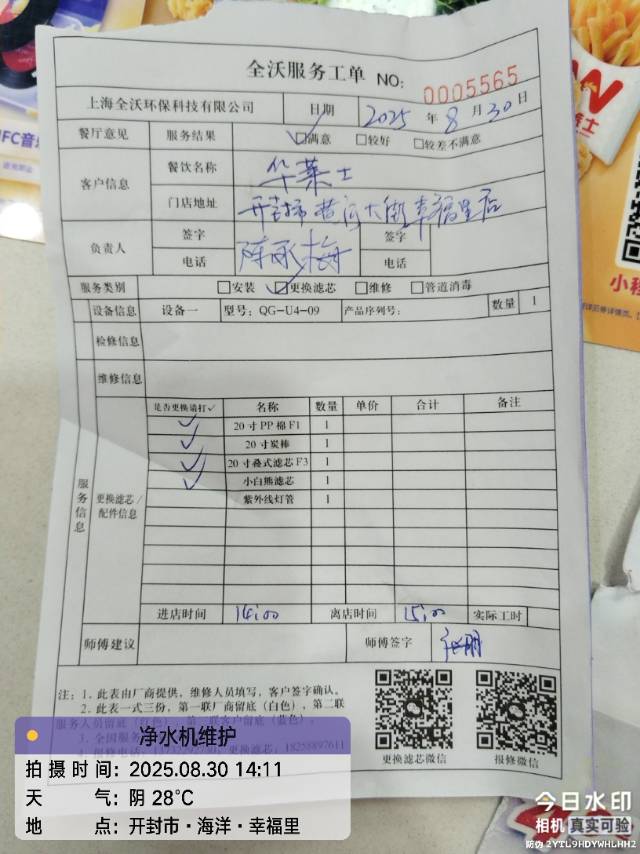 全沃服务工单 NO: 0005565
上海全沃环保科技有限公司 日期 2025 年 8 月 30 日
餐厅意见 服务结果 ☑满意 □较好 □较差不满意
客户信息 餐饮名称 华莱士
门店地址 开封市黄河大街幸福里店
负责人 签字 签字
电话 电话
服务类别 □安装 ☑更换滤芯 □维修 □管道消毒
设备信息 设备一 型号: QG-U4-09 产品序列号: 数量 1
检修信息
维修信息
是否更换请打✓ 名称 数量 单价 合计 备注
✓ 20寸PP棉F1 1
✓ 20寸炭棒 1
✓ 20寸叠式滤芯F3 1
✓ 小白熊滤芯 1
紫外线灯管 1
服务信息
更换滤芯/
配件信息
进店时间 14:00 离店时间 15:00 实际工时
师傅建议 师傅签字
注: 1、此表由厂商提供, 维修人员填写, 客户签字确认。
2、此表一式三份, 第一联厂商留底(白色), 第二联
更换滤芯微信 报修微信
净水机维护
拍摄时间: 2025.08.30 14:11
天 气: 阴 28℃
地 点: 开封市·海洋·幸福里
今日水印
相机 真实可验
防伪 2YTL9HDYWHLHH2